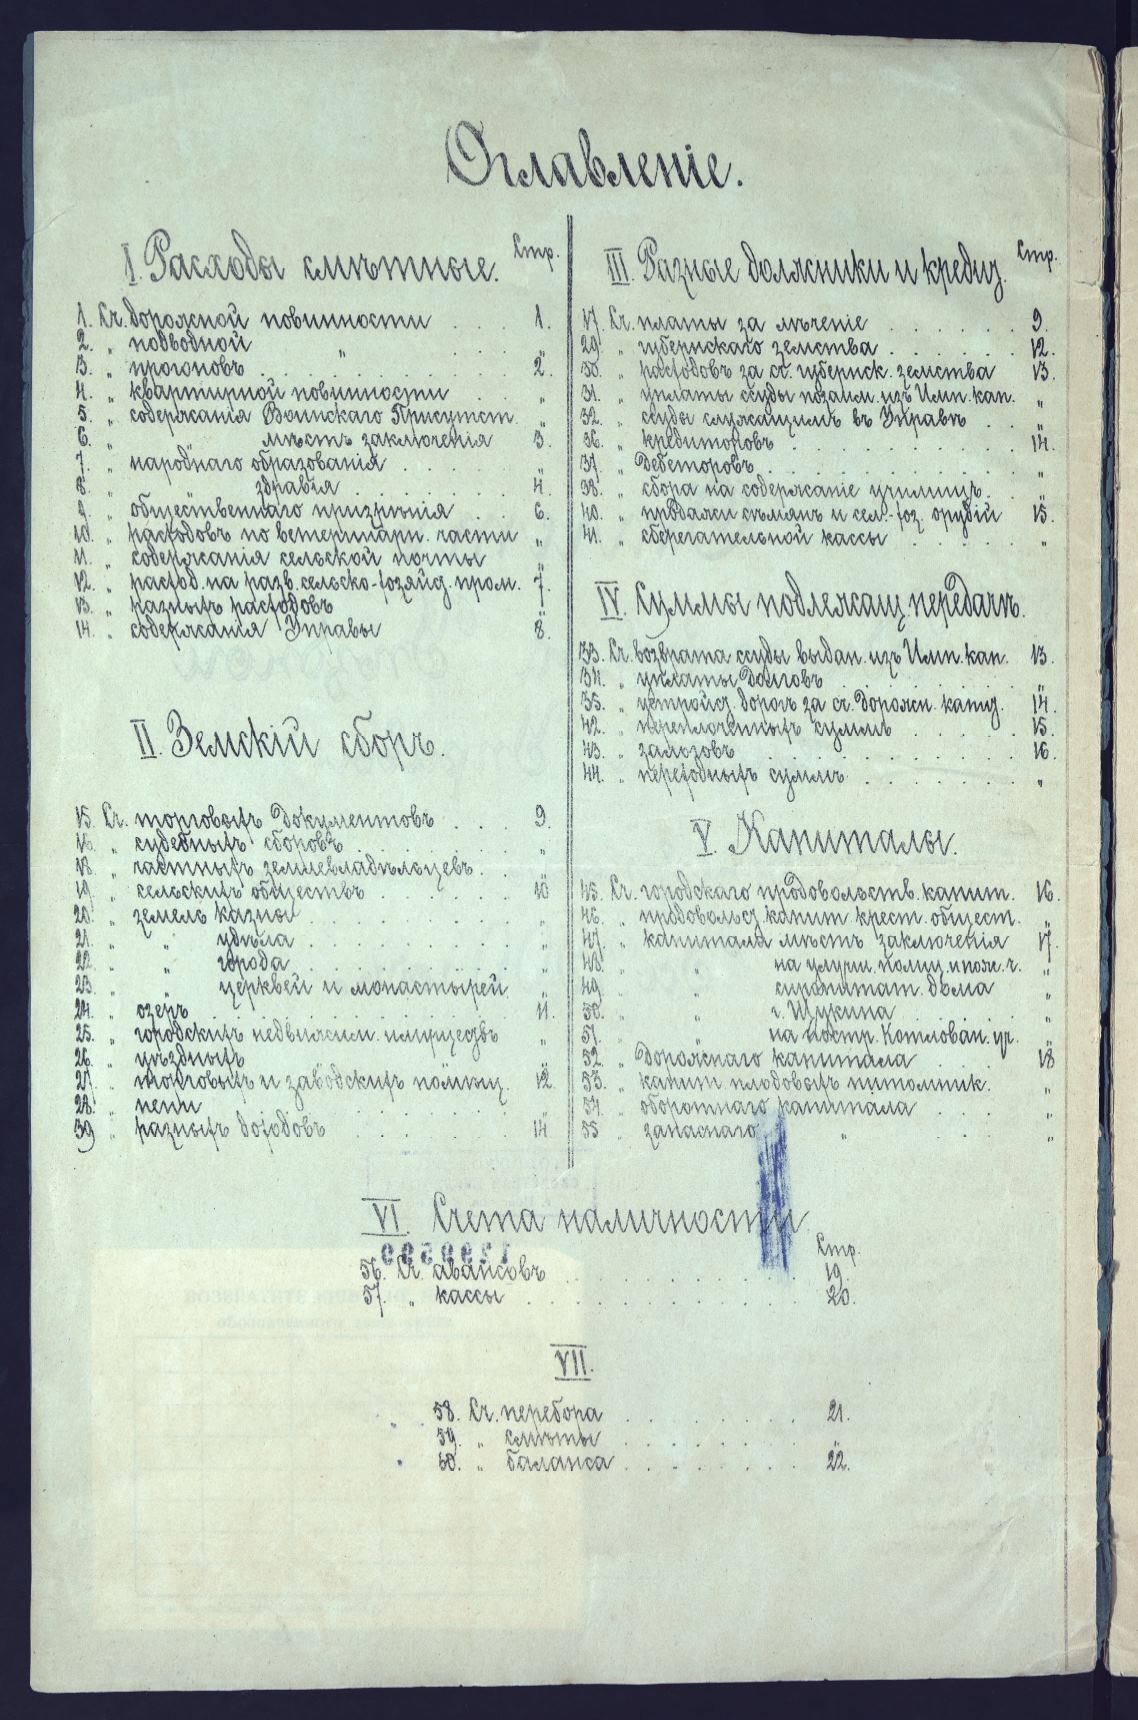 Оглавленіе.
I. Расходы смѣтные. Стр.
1. Сч. дорожной повинности . . . 1.
2. „ подводной „ „
3. „ прогоновъ . . . 2.
4. „ квартирной повинности . . „
5. „ содержанія Воинскаго Присутст. „
6. „ „ мѣстъ заключенія 3.
7. „ народнаго образованія . . . „
8. „ „ здравія . . . 4.
9. „ общественнаго призрѣнія . . 6.
10. „ расходовъ по ветеринарн. части „
11. „ содержанія сельской почты . „
12. „ расход. на разв. сельско-хозяйс. пром. 7.
13. „ разныхъ расходовъ „
14. „ содержанія Управы 8.
II. Земскій сборъ.
15. Сч. торговыхъ документовъ . . . 9.
16. „ судебныхъ сборовъ . . . „
18. „ частныхъ землевладѣльцевъ . . „
19. „ сельскихъ обществъ . . . 10
20. „ земель казны . . . „
21. „ „ удѣла . . . „
22. „ „ города . . . „
23. „ „ церквей и монастырей „
24. „ озеръ . . . 11.
25. „ городскихъ недвижим. имуществъ „
26. „ уѣздныхъ „
27. „ торговыхъ и заводскихъ помѣщ. 12.
28. „ пени . . . „
39 „ разныхъ доходовъ . . . 14
III. Разные должники и кредит. Стр.
17. Сч. платы за лѣченіе . . . 9.
29. „ губернскаго земства . . . 12.
30. „ расходовъ за сч. губернск. земства 13.
31. „ уплаты ссуды позаим. изъ Имп. кап. „
32. „ ссуды служащимъ въ Управѣ . . „
36. „ кредиторовъ . . . 14.
37. „ дебеторовъ . . . „
38. „ сбора на содержаніе училищъ . . „
40. „ продажи сѣмянъ и сел.-хоз. орудій 15.
41. „ сберегательной кассы . . . „
IV. Суммы подлежащ. передачѣ.
33. Сч. возврата ссуды выдан. изъ Имп. кап. 13.
34. „ уплаты долговъ . . . „
35. „ устройст. дорогъ за сч. дорожн. капит. 14.
42. „ переплоченныхъ суммъ . . . 15.
43. „ залоговъ . . . 16.
44. „ переходныхъ суммъ . . . „
V. Капиталы.
45. Сч. городскаго продовольств. капит. 16.
46. „ продовольст. капит. крест. общест. „
47. „ капитала мѣстъ заключенія 17.
48. „ „ на улучш. полиц. и пож. ч. „
49. „ „ сиропитат. дома „
50. „ „ г. Щукина . . „
51. „ „ на постр. Котлован. уч. „
52. „ дорожнаго капитала . . . 18
53. „ капит. плодовыхъ питомник. . „
54. „ оборотнаго капитала . . . „
55 „ запаснаго „ . . „
VI. Счета наличности.
Стр.
56. Сч. авансовъ . . . 19.
57. „ кассы . . . 20.
VII.
58. Сч. перебора . . . 21.
59. „ смѣты . . . „
60. „ баланса . . . 22.